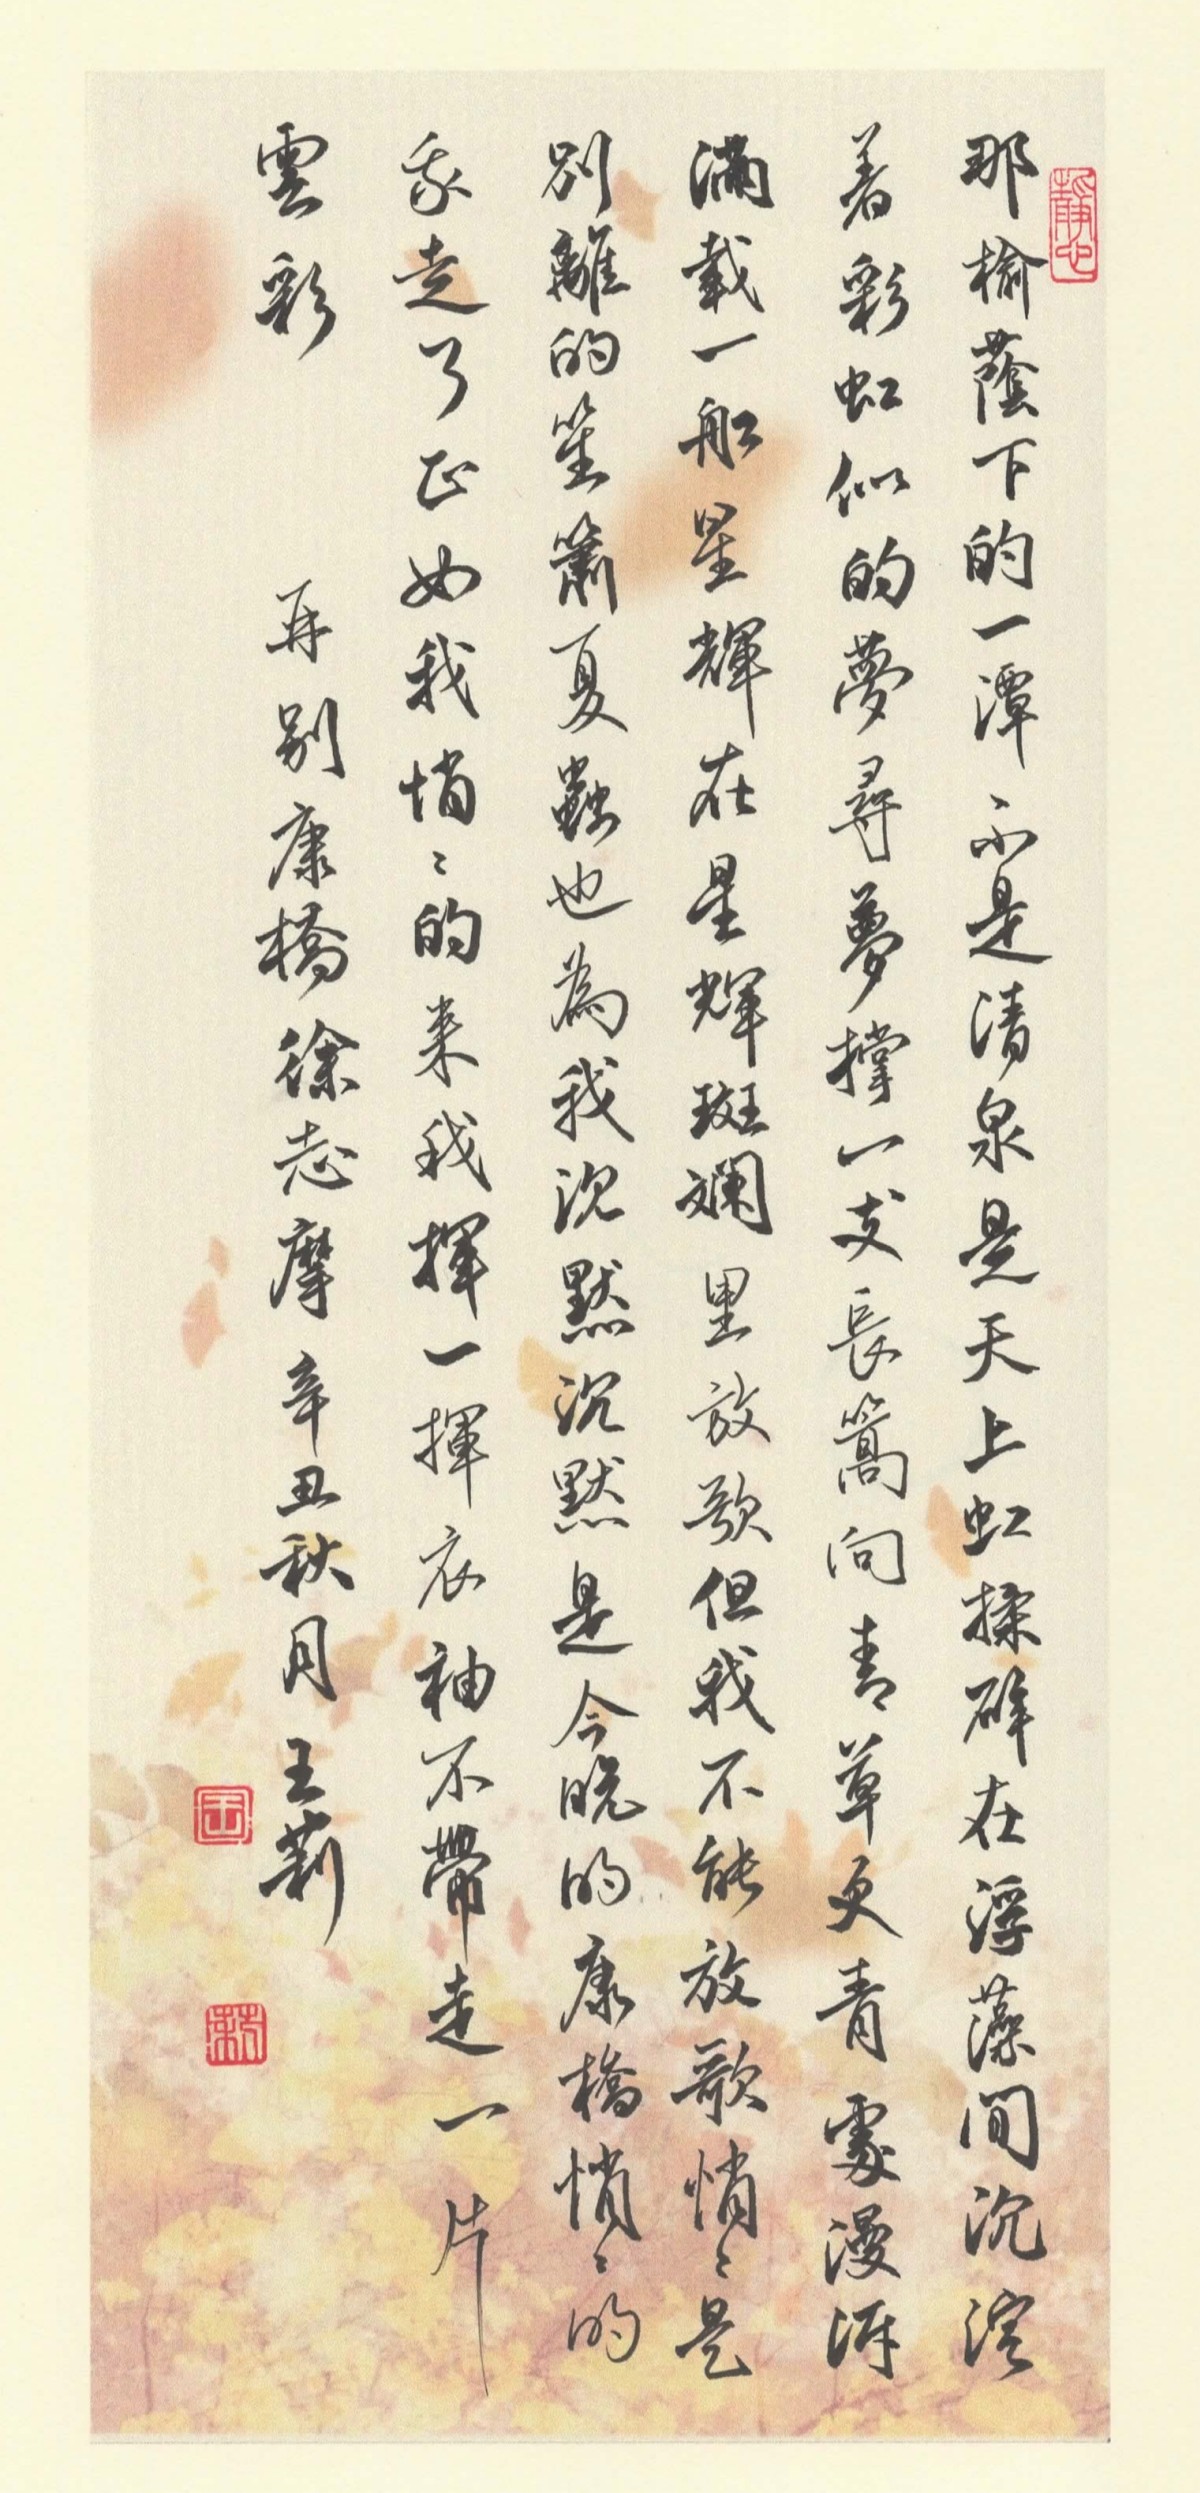 靜心
那榆蔭下的一潭不是清泉是天上虹揉碎在浮藻間沉淀
着彩虹似的夢尋夢撐一支長篙向青草更青處漫泝
滿載一船星輝在星輝斑斕里放歌但我不能放歌悄〻是
別離的笙簫夏蟲也為我沉默沉默是今晚的康橋悄〻的
我走了正如我悄〻的来我揮一揮衣袖不帶走一片
雲彩 再別康橋徐志摩辛丑秋月王莉
王
莉